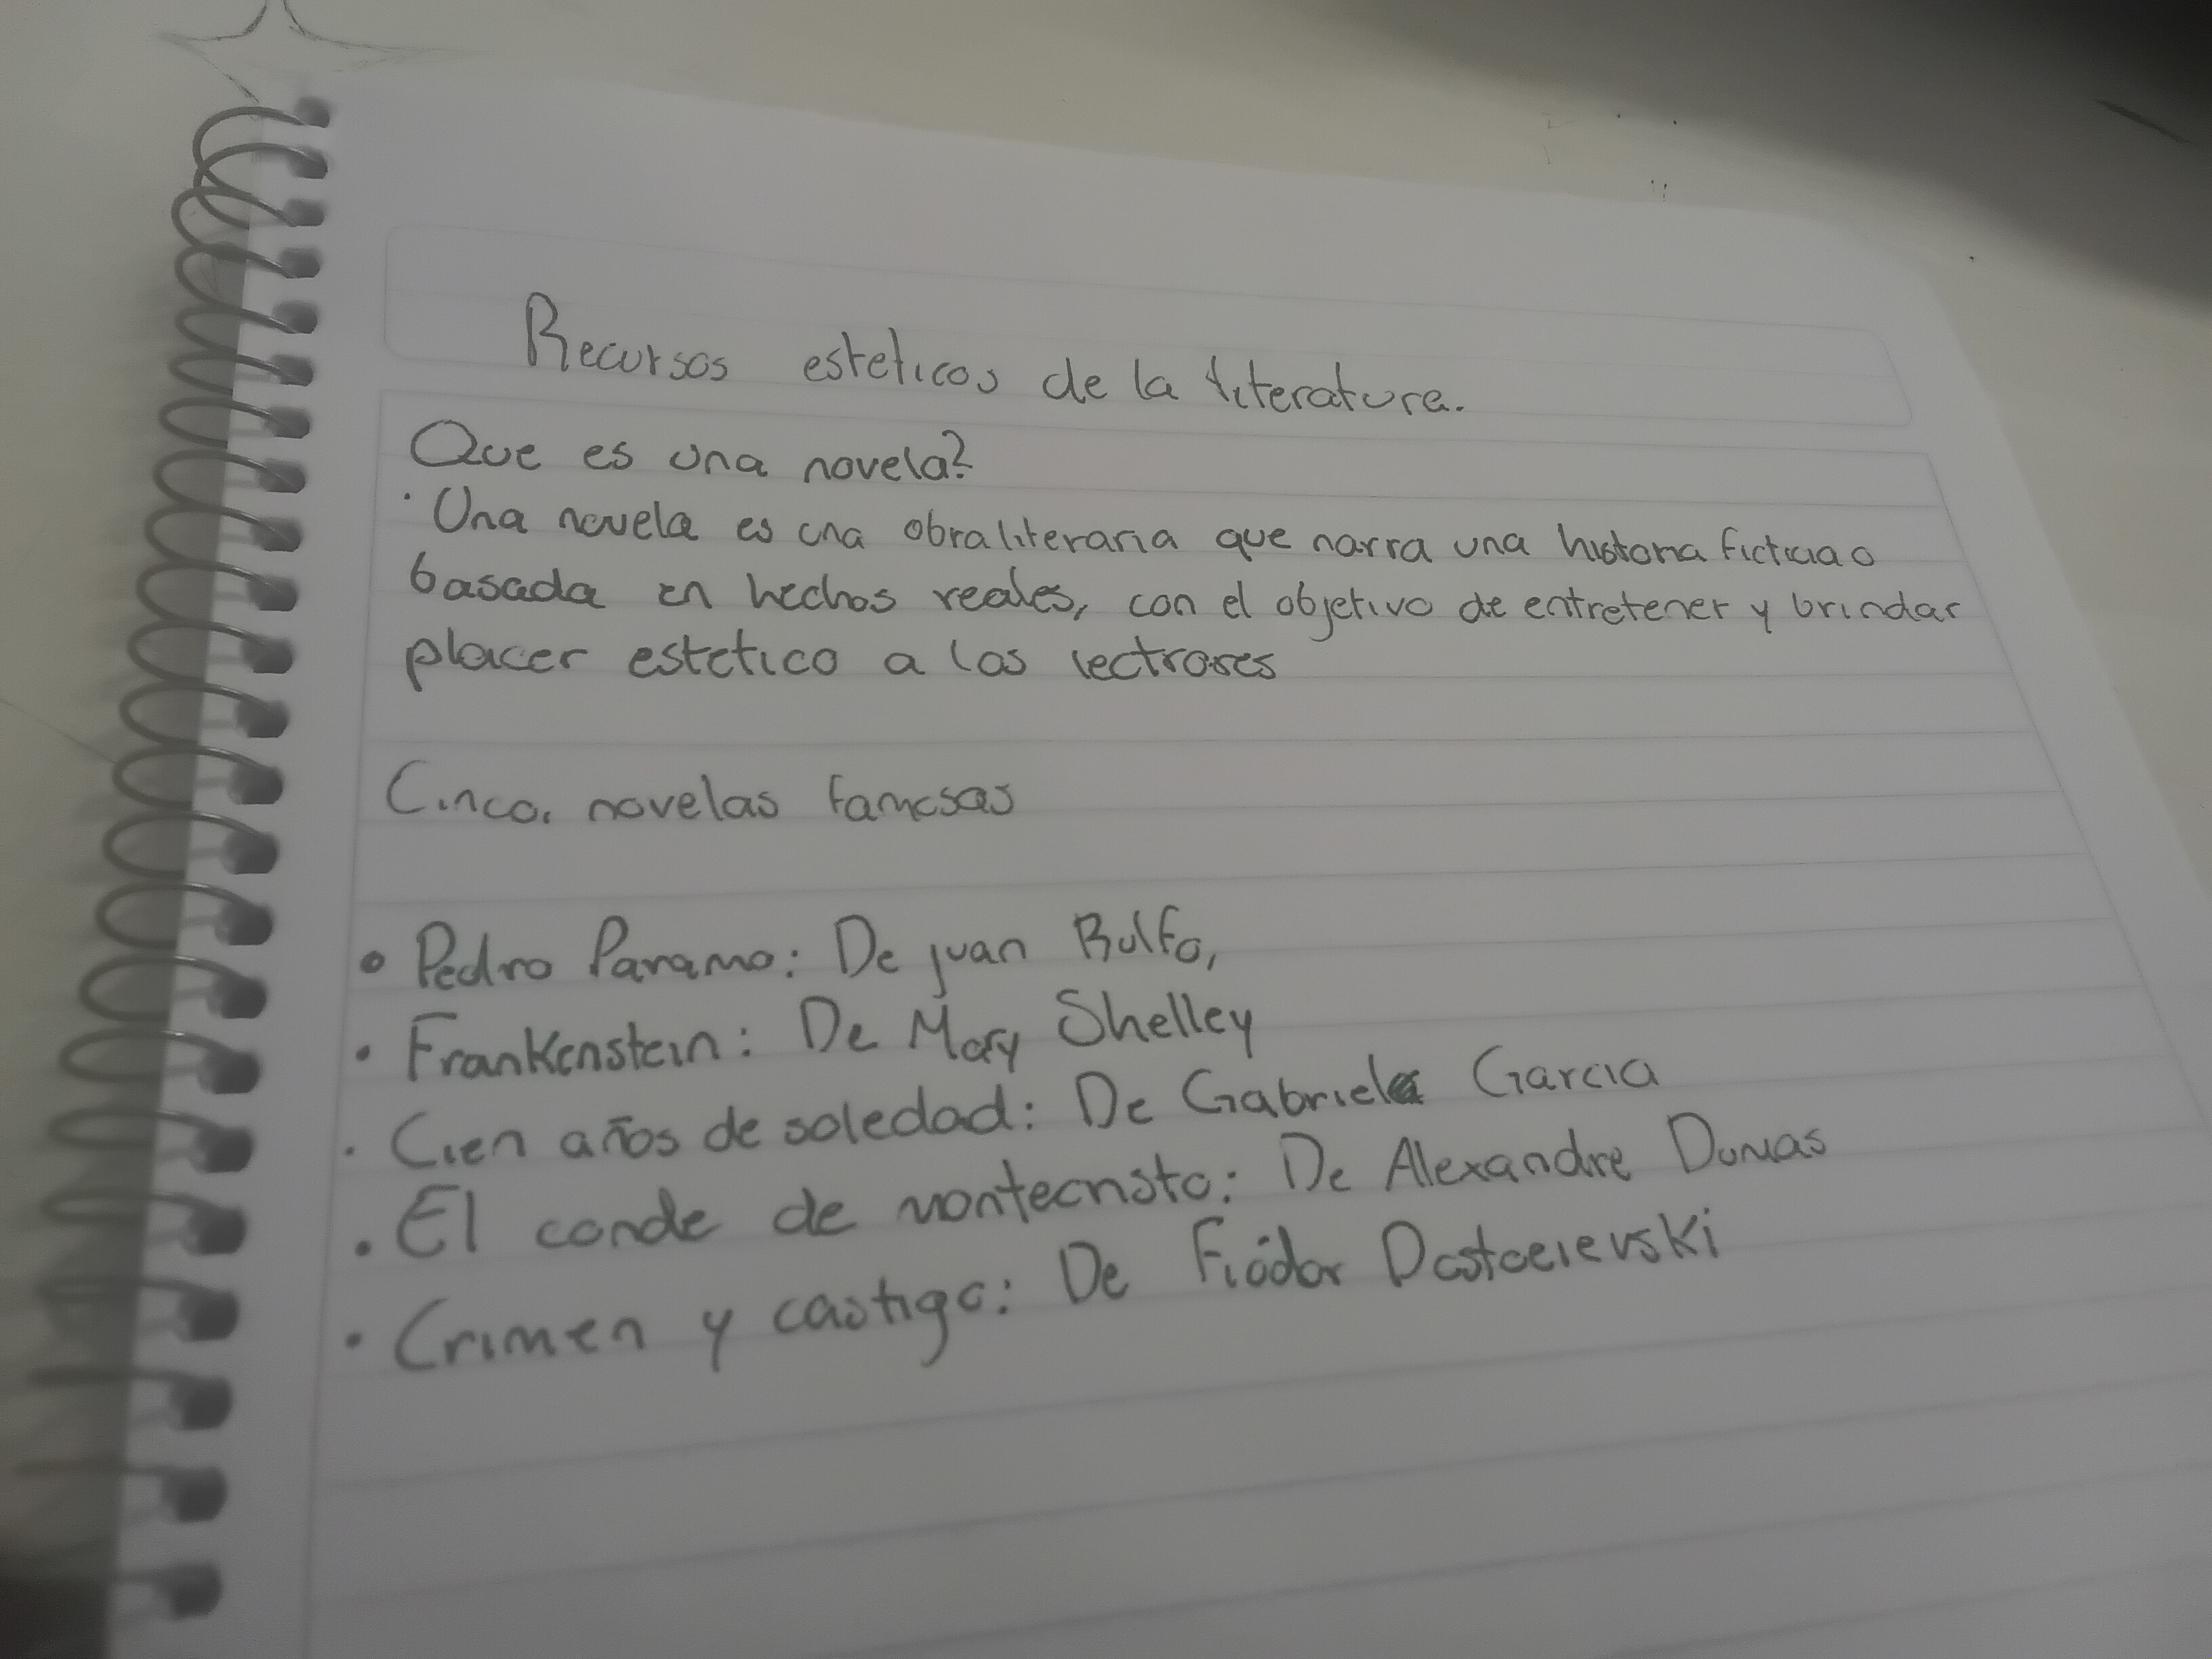 Recursos esteticos de la literatura.
Que es una novela?
· Una novela es una obra literaria que narra una historia ficticia o
basada en hechos reales, con el objetivo de entretener y brindar
placer estetico a los lectrores
Cinco. novelas famosas
• Pedro Paramo: De juan Rulfo,
• Frankenstein: De Mary Shelley
• Cien años de soledad: De Gabriela Garcia
• El conde de montecristo: De Alexandre Dumas
• Crimen y castigo: De Fiódor Dostoeievski